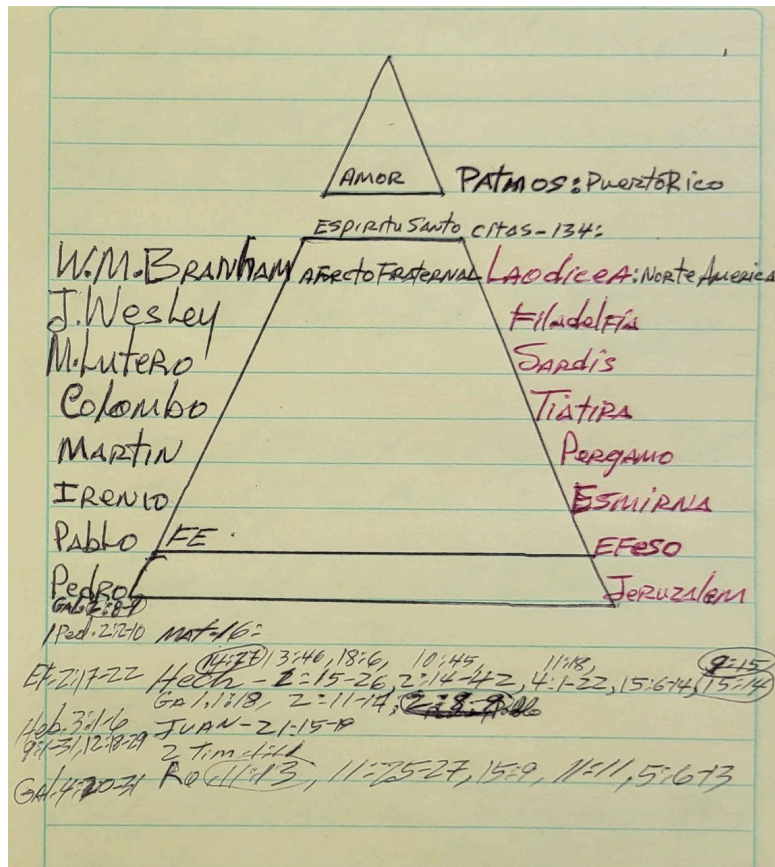 AMOR PATMOS: PuertoRico
Espiritu Santo citas-134:
W.M.BRANham AFectoFRAteRNAL LAodiceA: NORte AmericA
J. Wesley Filadelfia
M. LuteRO SARdis
Colombo TiAtiRA
MARtiN PeRgAmo
IReNIO ESMIRNA
PabLo FE EFeso
PedRo JeRuzAlem
GAL.2:8-9
1 Ped. 2:2-10 MAt.16:
14:27 13:46, 18:6, 10:45, 11:18, 9:15
Ef. 2:17-22 Hech - 2:15-26, 2:14-42, 4:1-22, 15:6-14, 15:14
GAl. 1:18, 2:11-14,
Heb. 3:1-6 JUAN-21:15-19
12:18-29 2 Tim
GAL. 4:20-31 Ro 11:13, 11:25-27, 15:9, 11:11, 5:6-13